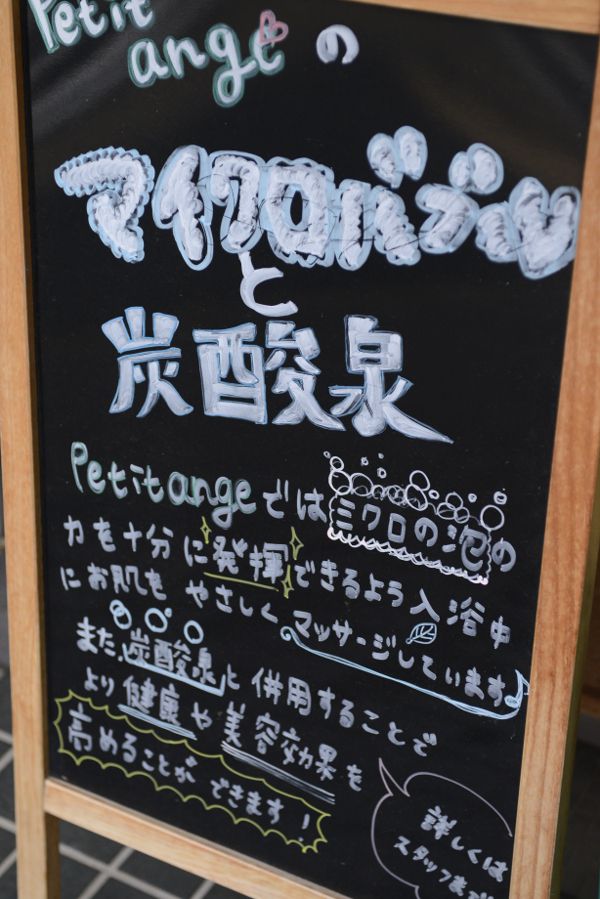 Petit
angeの
マイクロバブル
と
炭酸泉
Petit angeではミクロの泡の
力を十分に発揮できるよう入浴中
にお肌をやさしくマッサージしています
また、炭酸泉と併用することで
より健康や美容効果を
高めることができます！
詳しくは
スタッフまで